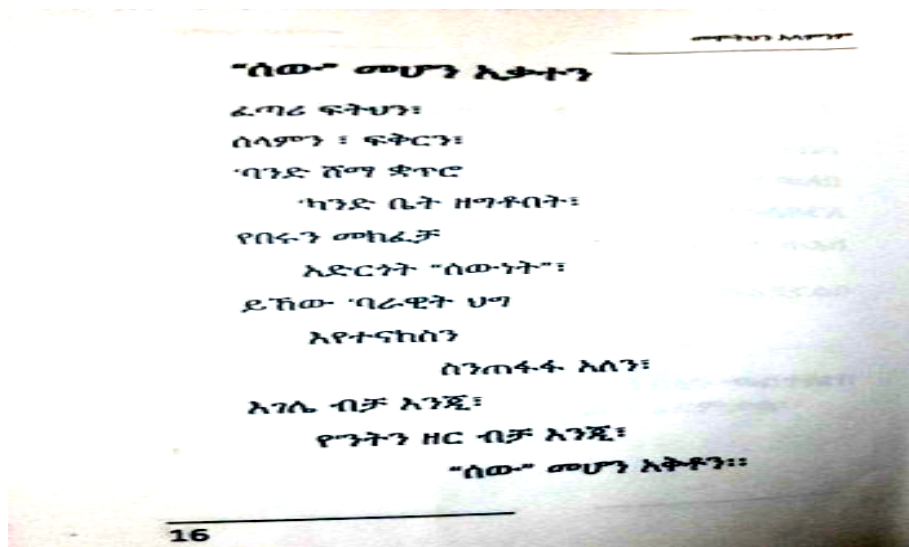 መሞትህን አላምንም
"ሰው" መሆን ኢቃተን
ፈጣሪ ፍትህን፣
ሰላምን ፣ ፍቅርን፣
'ባንድ ሸማ ቋጥሮ
'ካንድ ቤት ዘግቶበት፣
የበሩን መክፈቻ
አድርጎት "ሰውነት"፣
ይኸው 'ባራዊት ህግ
እየተናከስን
ስንጠፋፋ አለን፣
እገሌ ብቻ እንጂ፣
የ'ንትን ዘር ብቻ እንጂ፣
"ሰው" መሆን አቅቶን።
16